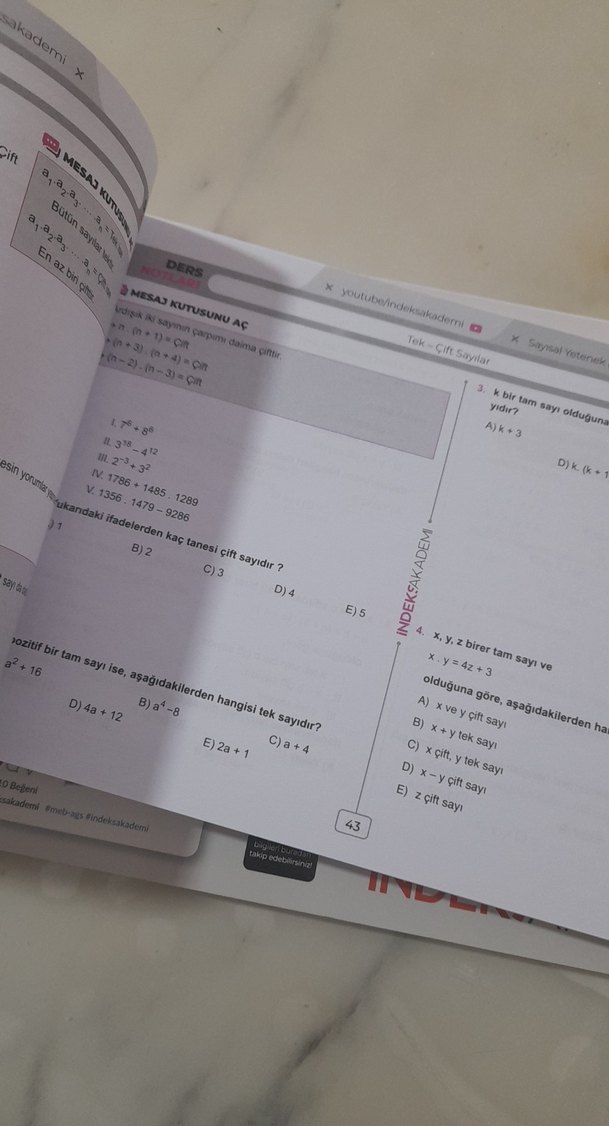 sakademi ×
Çift
MESAJ KUTUSUNU AÇ
a₁.a₂.a₃. ... .aₙ = Tek
Bütün sayılar tektir.
a₁.a₂.a₃. ... .aₙ = Çift
En az biri çifttir.
esin yorumlar
sayı da
10 Beğeni
sakademi #meb-ags #indeksakademi
DERS
NOTLARI
× youtube/indeksakademi
× Sayısal Yetenek
Tek – Çift Sayılar
MESAJ KUTUSUNU AÇ
Ardışık iki sayının çarpımı daima çifttir.
n . (n + 1) = Çift
(n + 3) . (n + 4) = Çift
(n – 2) . (n – 3) = Çift
I. 7⁶ + 8⁶
II. 3¹⁸ – 4¹²
III. 2⁻³ + 3²
IV. 1786 + 1485 . 1289
V. 1356 . 1479 – 9286
ukarıdaki ifadelerden kaç tanesi çift sayıdır ?
) 1
B) 2
C) 3
D) 4
E) 5
pozitif bir tam sayı ise, aşağıdakilerden hangisi tek sayıdır?
a² + 16
B) a⁴ – 8
C) a + 4
D) 4a + 12
E) 2a + 1
İNDEKSAKADEMİ
3. k bir tam sayı olduğuna
yıdır?
A) k + 3
D) k. (k + 1
4. x, y, z birer tam sayı ve
x . y = 4z + 3
olduğuna göre, aşağıdakilerden ha
A) x ve y çift sayı
B) x + y tek sayı
C) x çift, y tek sayı
D) x – y çift sayı
E) z çift sayı
43
bilgileri buradan
takip edebilirsiniz!